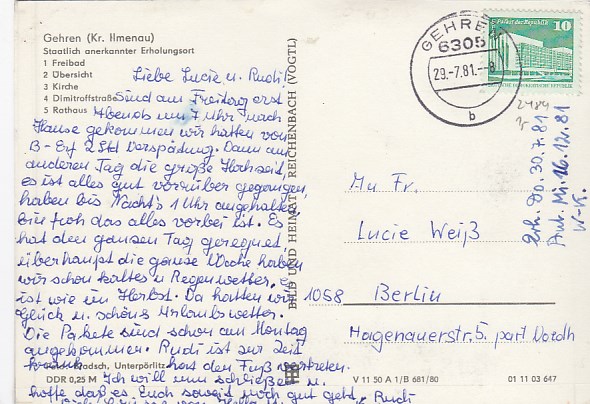 Gehren (Kr. Ilmenau)
Staatlich anerkannter Erholungsort
1 Freibad
2 Übersicht
3 Kirche
4 Dimitroffstraße
5 Rathaus
Liebe Lucie u. Rudi!
Sind am Freitag erst
Abends um 7 Uhr nach
Hause gekommen wir hatten von
B-Erf 2 Std Verspätung. Dann am
anderen Tag die große Hochzeit
es ist alles gut vorrüber gegangen
haben bis Nacht's 1 Uhr ausgehalten
bin froh das alles vorbei ist. Es
hat den ganzen Tag geregnet
überhaupt die ganze Woche haben
wir schon kaltes u Regenwetter.
ist wie im Herbst. Da hatten wir
Glück u. schönes Urlaubswetter.
Die Pakete sind schon am Montag
angekommen. Rudi ist zur Zeit
krank hat den Fuß vertreten.
Ich will nun schließen u.
hoffe daß es Euch soweit noch gut geht
Rudi
radsch, Unterpörlitz
DDR 0,25 M
BILD UND HEIMAT REICHENBACH (VOGTL)
V 11 50 A 1/B 681/80
01 11 03 647
GEHREN
6305
29.-7.81.-8
b
Palast der Republik
10
2484
Erh. Do. 30.7.81
Ant. Mi. 16.12.81
An Fr.
Lucie Weiß
1058 Berlin
Hagenauerstr. 5. part